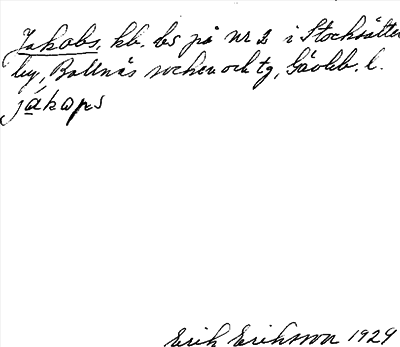 Jakobs, hb. bs på nr 2 i Stocksätter
by, Bollnäs socken och tg, Gävleb. l.
jákaps
Erik Eriksson 1929